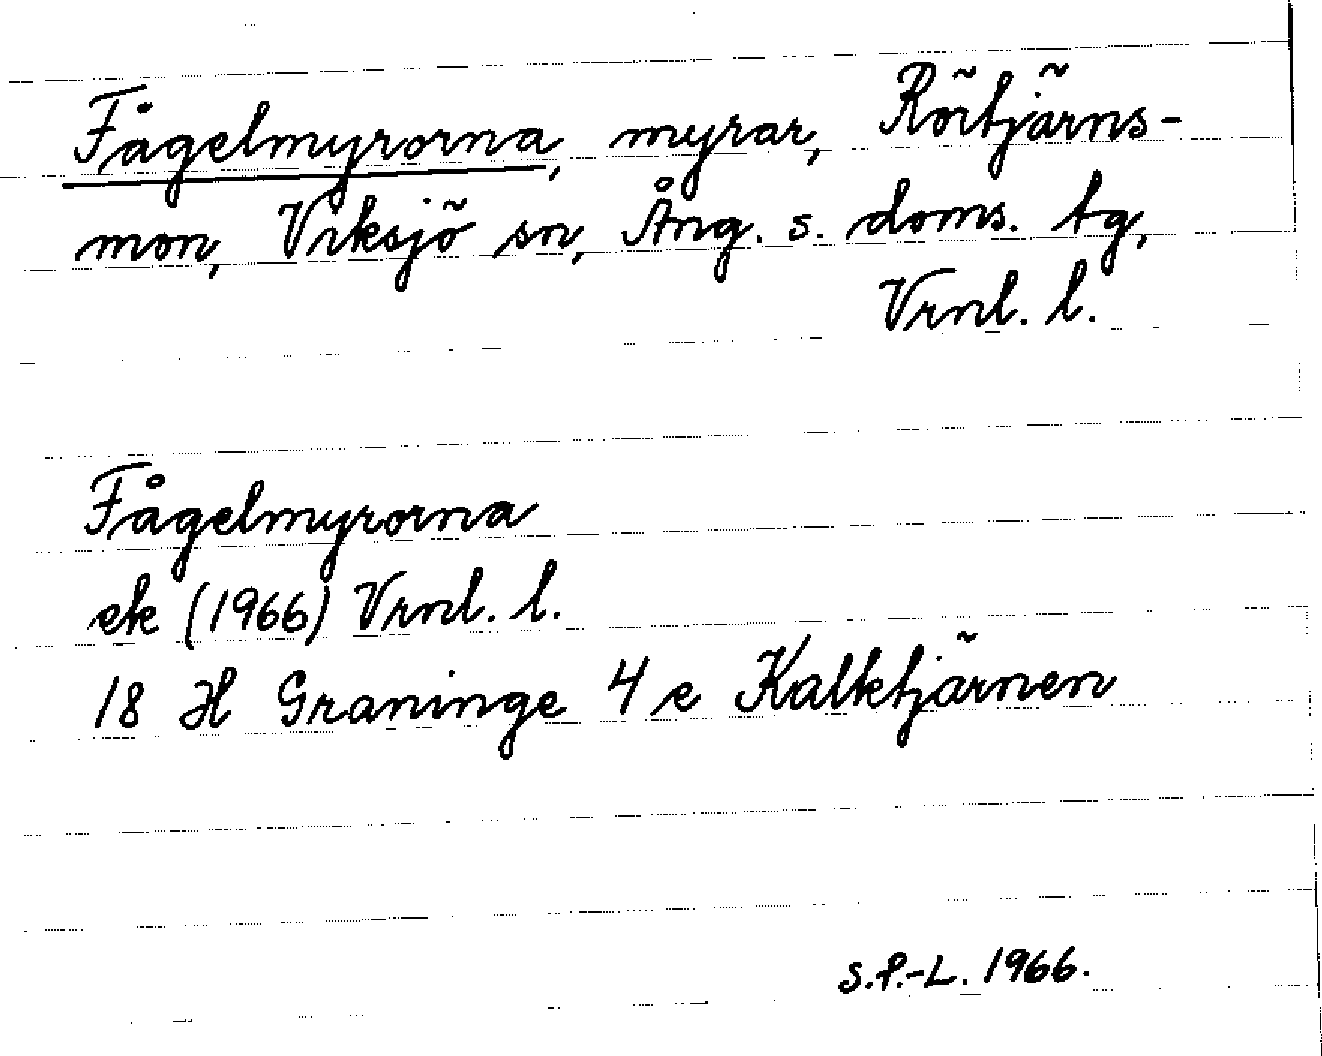 Fågelmyrorna, myrar, Rörtjärns-
mon, Viksjö sn, Ång. s. doms. tg,
Vrnl. l.
Fågelmyrorna
ek (1966) Vrnl. l.
18 H Graninge 4 e Kalktjärnen
S.P.-L. 1966.